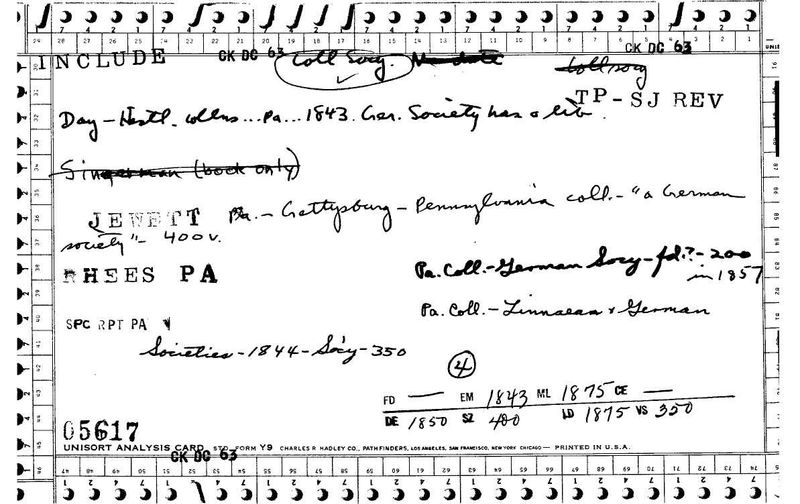 INCLUDE CK DC 63 Coll Socy. CK DC 63
Coll socy
TP-SJ REV
Day - Histl. collns ... Pa ... 1843. Ger. Society has a lib.
Singerman (book only)
JEWETT Pa. - Gettysburg - Pennsylvania coll. - "a German
society" - 400 v.
RHEES PA Pa. Coll. - German Socy - fd.? - 200
in 1857
Pa. Coll. - Linnaean & German
SPC RPT PA
Societies - 1844 - Soc'y - 350
4
FD — EM 1843 ML 1875 CE —
DE 1850 SZ 400 LD 1875 VS 350
05617
UNISORT ANALYSIS CARD STD. FORM Y9 CHARLES R. HADLEY CO., PATHFINDERS, LOS ANGELES, SAN FRANCISCO, NEW YORK CHICAGO — PRINTED IN U.S.A.
CK DC 63